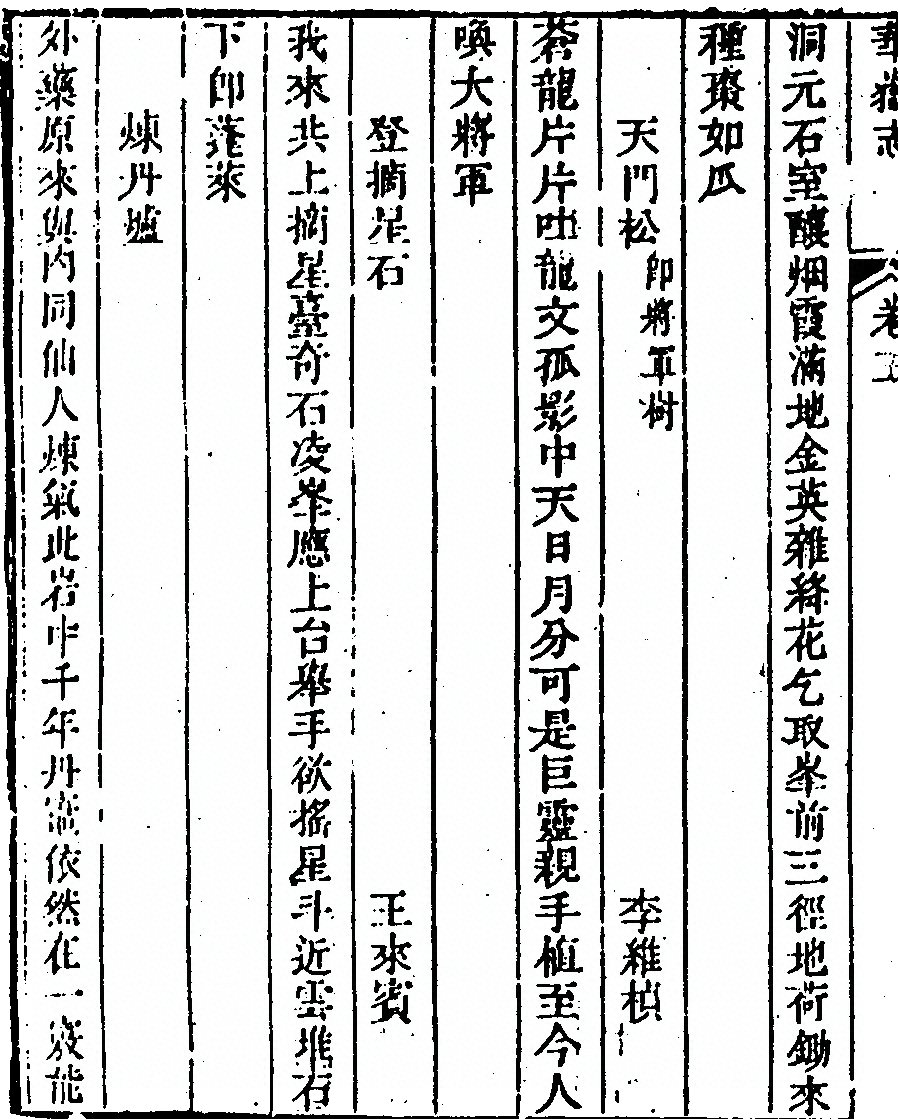 華嶽志 卷五
洞元石室釀烟霞滿地金英雜絳花乞取峯前三徑地荷鋤來
種棗如瓜
天門松 即將軍樹 李維楨
蒼龍片片吐龍文孤影中天日月分可是巨靈親手植至今人
喚大將軍
登摘星石 王來賓
我來共上摘星臺奇石凌峯應上台舉手欲搖星斗近雲堆石
下即蓬萊
煉丹爐
外藥原來與內同仙人煉氣此岩中千年丹竈依然在一竅能